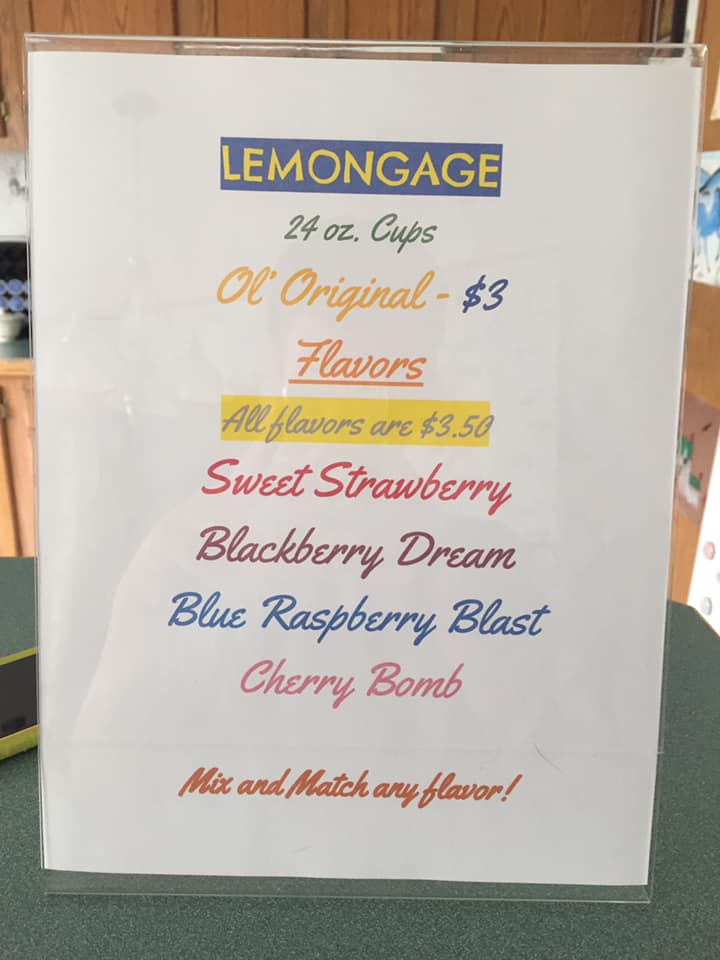 LEMONGAGE
24 oz. Cups
Ol' Original - $3
Flavors
All flavors are $3.50
Sweet Strawberry
Blackberry Dream
Blue Raspberry Blast
Cherry Bomb
Mix and Match any flavor!